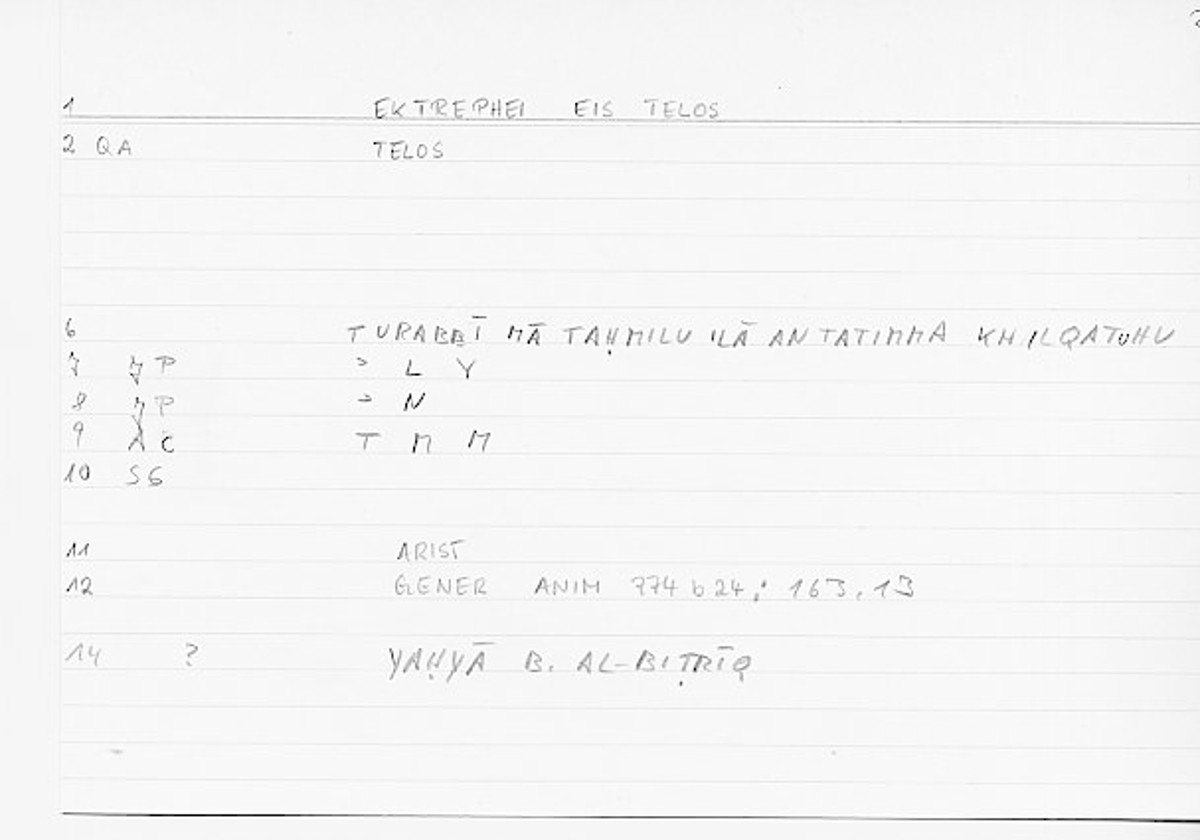 1 EKTREPHEI EIS TELOS
2 QA TELOS
6 TURABBĪ MĀ TAḤMILU ILĀ AN TATIMMA KHILQATUHU
7 P ʾ L Y
8 P ʾ N
9 T M M
10 SG
11 ARIST
12 GENER ANIM 774 b 24; 163,13
14 ? YAḤYĀ B. AL-BIṬRĪQ